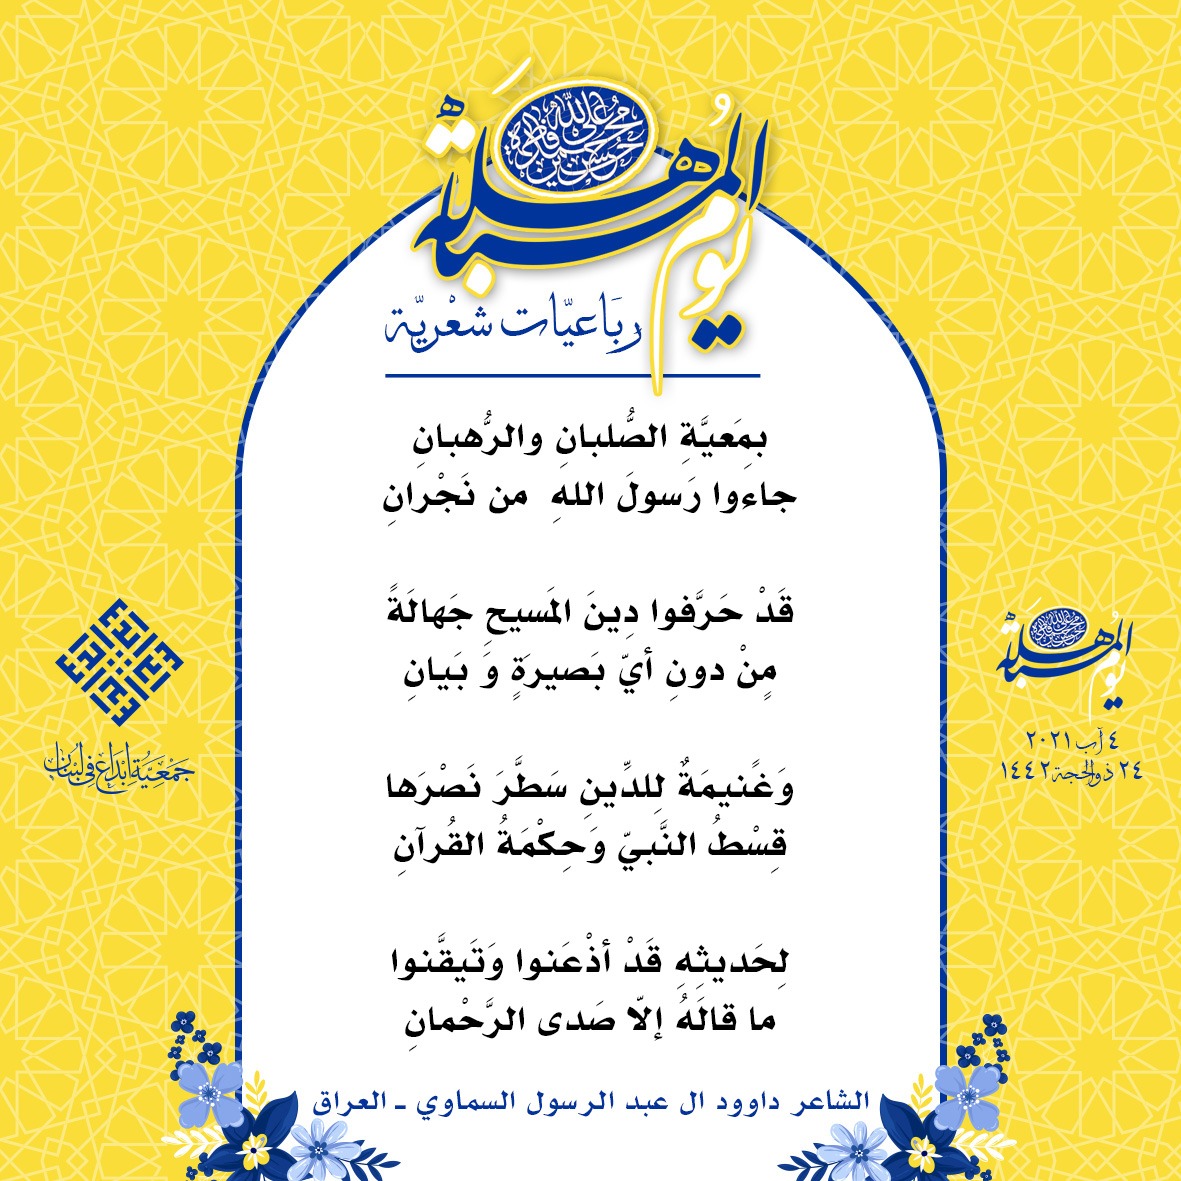 يوم المباهلة
محمد علي فاطمة حسن حسين
رباعيّات شعْريّة
بمِعيَّةِ الصُّلبانِ والرُّهبانِ
جاءوا رَسولَ اللهِ من نَجْرانِ
قَدْ حَرَّفوا دِينَ المَسيحِ جَهالَةً
مِنْ دونِ أيّ بَصيرَةٍ وَ بَيانِ
وَغَنيمَةٌ لِلدِّينِ سَطَّرَ نَصْرَها
قِسْطُ النَّبيّ وَحِكْمَةُ القُرآنِ
لِحَديثِهِ قَدْ أذْعَنوا وَتَيقَّنوا
ما قالَهُ إلّا صَدى الرَّحْمانِ
الشاعر داوود ال عبد الرسول السماوي ـ العراق
يوم المباهلة
٤ آب ٢٠٢١
٢٤ ذو الحجة ١٤٤٢
جمعيّة إبداع في لبنان